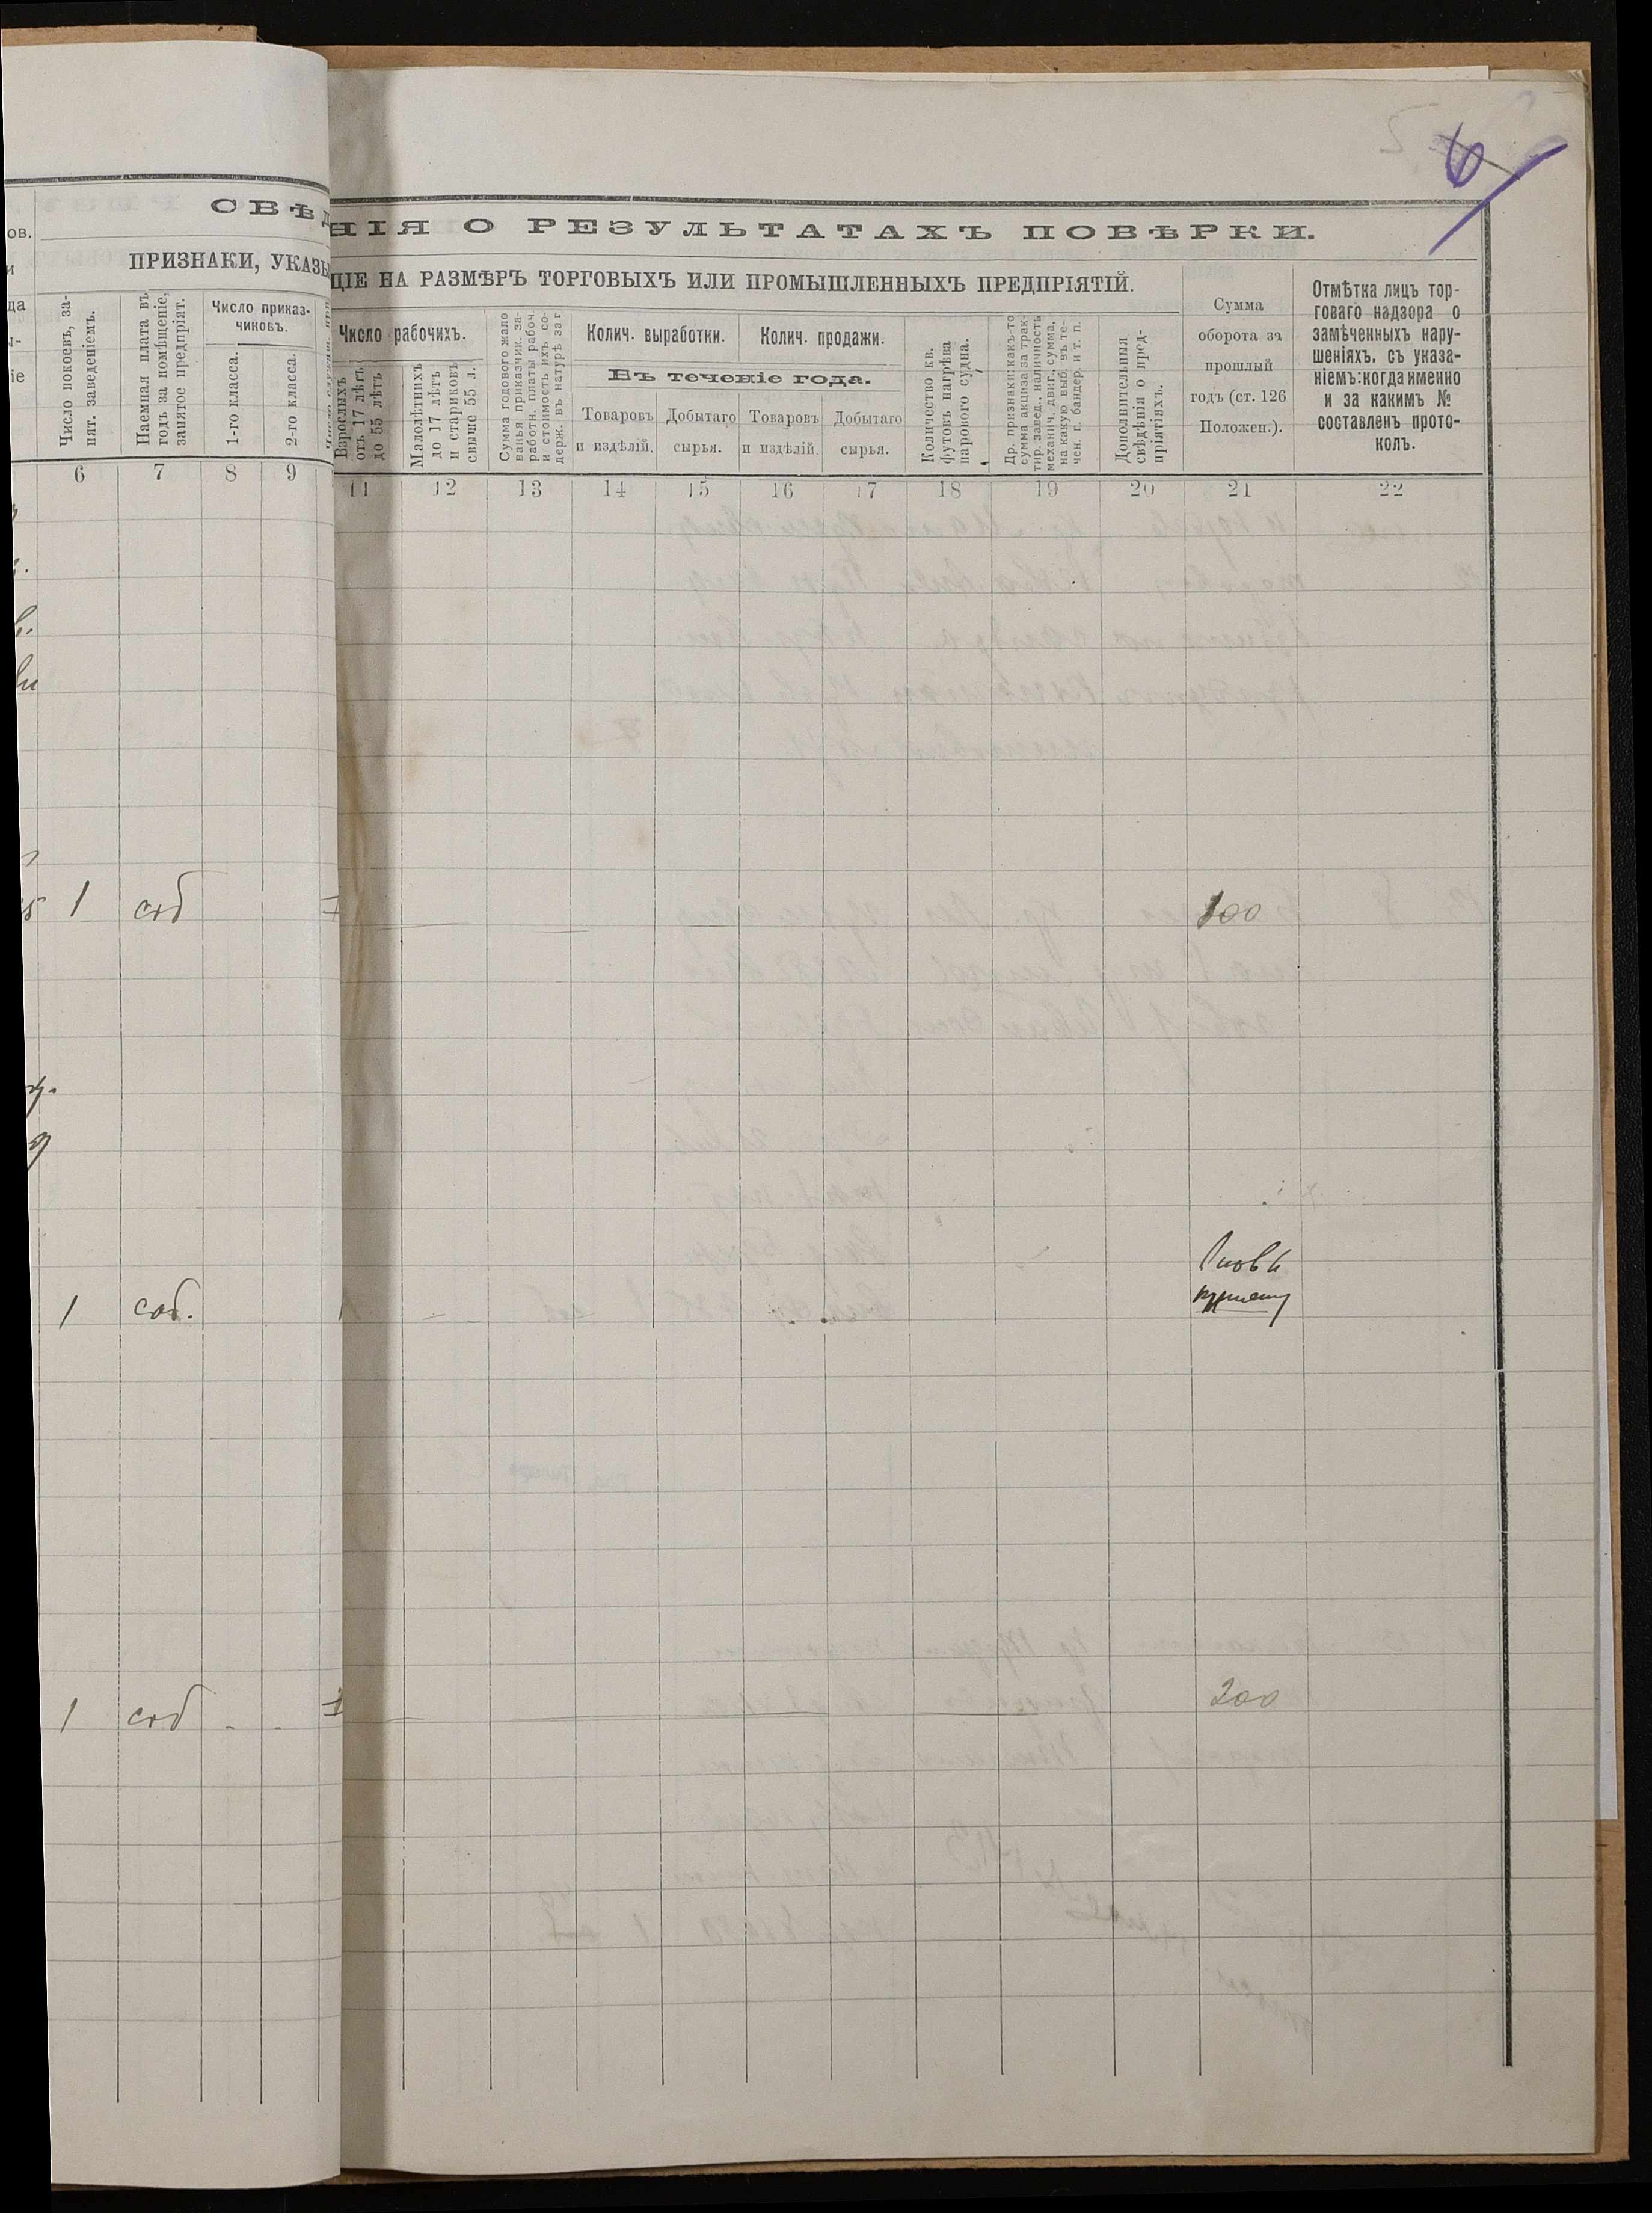 6
СВѢД
НІЯ О РЕЗУЛЬТАТАХЪ ПОВѢРКИ.
ов.
ПРИЗНАКИ, УКАЗЫ
ЩІЕ НА РАЗМѢРЪ ТОРГОВЫХЪ ИЛИ ПРОМЫШЛЕННЫХЪ ПРЕДПРІЯТІЙ.
и
да
іе
Число покоевъ, за-
нят. заведеніемъ.
Наемная плата въ
годъ за помѣщеніе,
занятое предпріят.
Число приказ-
чиковъ.
1-го класса.
2-го класса.
Число рабочихъ.
Взрослыхъ
отъ 17 лѣтъ
до 55 лѣтъ
Малолѣтнихъ
до 17 лѣтъ
и стариковъ
свыше 55 л.
Сумма годового жало
ванья приказчик. за-
работн. платы рабоч.
и стоимость ихъ со-
держ. въ натурѣ за г
Колич. выработки.
Колич. продажи.
Въ теченіе года.
Товаровъ
и издѣлій.
Добытаго
сырья.
Товаровъ
и издѣлій.
Добытаго
сырья.
Количество кв.
футовъ нагрѣва
парового судна.
Др. признаки: какъ-то
сумма акциза за трак-
тир. завед., наличность
механич. двиг., сумма,
на какую выб. въ те-
чен. г. бандер. и т. п.
Дополнительныя
свѣдѣнія о пред-
пріятіяхъ.
Сумма
оборота за
прошлый
годъ (ст. 126
Положен.).
Отмѣтка лицъ тор-
говаго надзора о
замѣченныхъ нару-
шеніяхъ, съ указа-
ніемъ: когда именно
и за какимъ №
составленъ прото-
колъ.
6 7 8 9 11 12 13 14 15 16 17 18 19 20 21 22
1 соб 100
1 соб. 1
1 соб - - 200